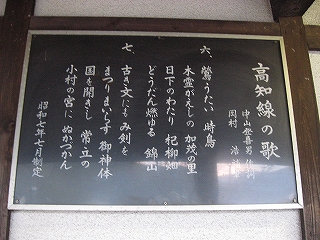 高知線の歌
中山登喜男 作詞
岡村 浩
六、鶯うたい 時鳥
木霊がえしの 加茂の里
日下のわたり 杞柳畑
どうだん燃ゆる 錦山
七、古き文にもみ剣を
まつりまいらす 御神体
国を開きし 常立の
小村の宮に ぬかづかん
昭和七年七月制定